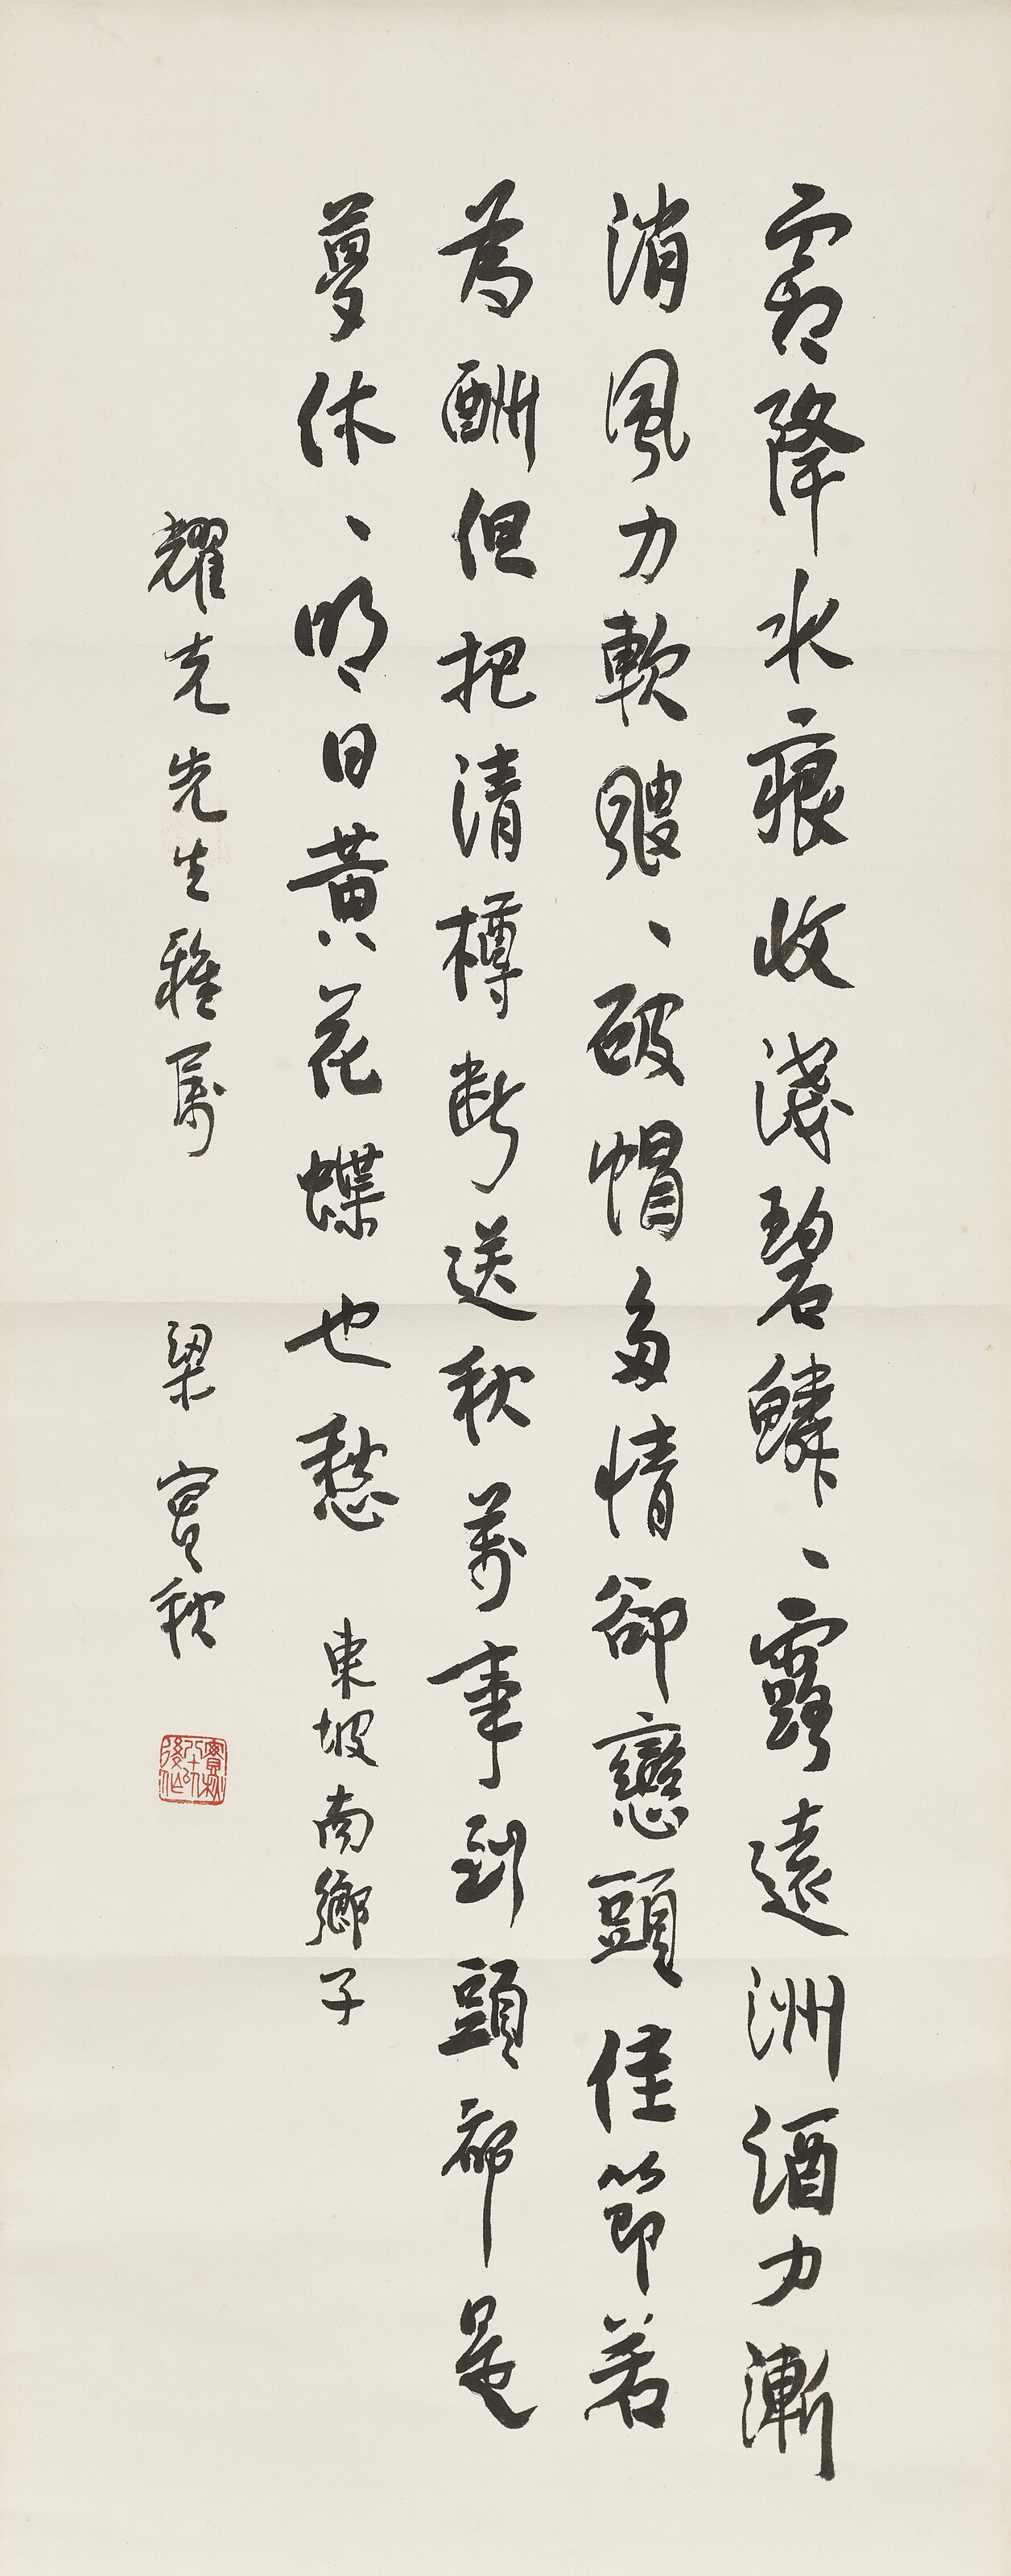 霜降水痕收淺碧鱗、露遠洲酒力漸
消風力軟颼、破帽多情卻戀頭佳節若
為酬但把清樽斷送秋萬事到頭都是
夢休、明日黃花蝶也愁 東坡南鄉子
耀克先生雅屬 梁實秋
實秋八十以後作